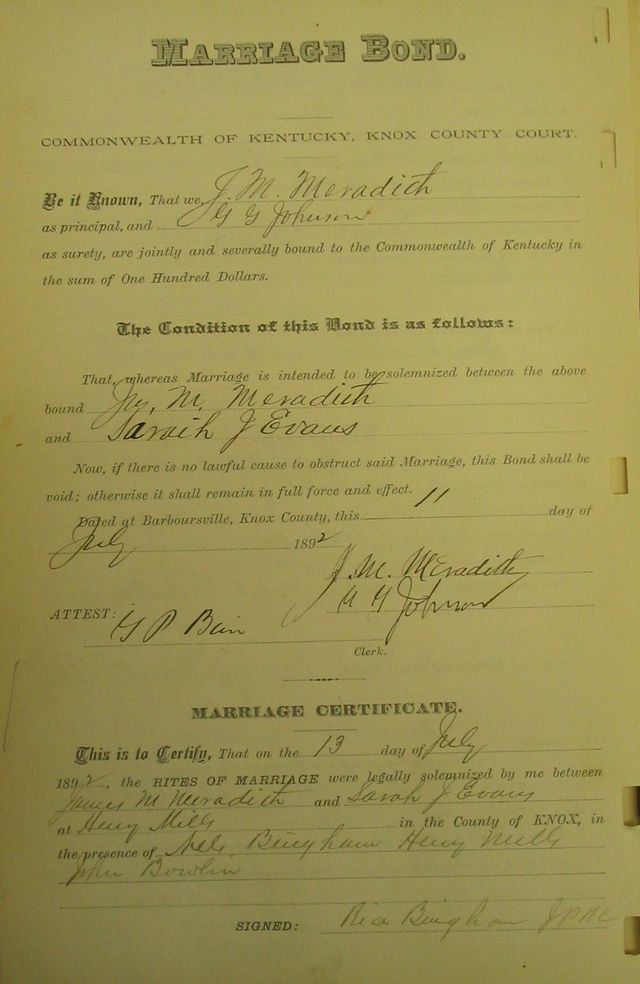 MARRIAGE BOND.
COMMONWEALTH OF KENTUCKY, KNOX COUNTY COURT.
Be it Known, That we, J. M. Meradith
as principal, and G G Johnson
as surety, are jointly and severally bound to the Commonwealth of Kentucky in
the sum of One Hundred Dollars.
The Condition of this Bond is as follows:
That, whereas Marriage is intended to be solemnized between the above
bound M. Meradith
and Saraih J Evans
Now, if there is no lawful cause to obstruct said Marriage, this Bond shall be
void; otherwise it shall remain in full force and effect.
Dated at Barboursville, Knox County, this 11 day of
July 1892
J. M. Meradith
G Johnson
ATTEST: G P Bain
Clerk.
MARRIAGE CERTIFICATE.
This is to Certify, That on the 13 day of July
1892, the RITES OF MARRIAGE were legally solemnized by me between
James M Meradith and Sarah J Evans
at Henry Mills in the County of KNOX, in
the presence of Bingham Henry Mills
John Bowlin
SIGNED: Bingham